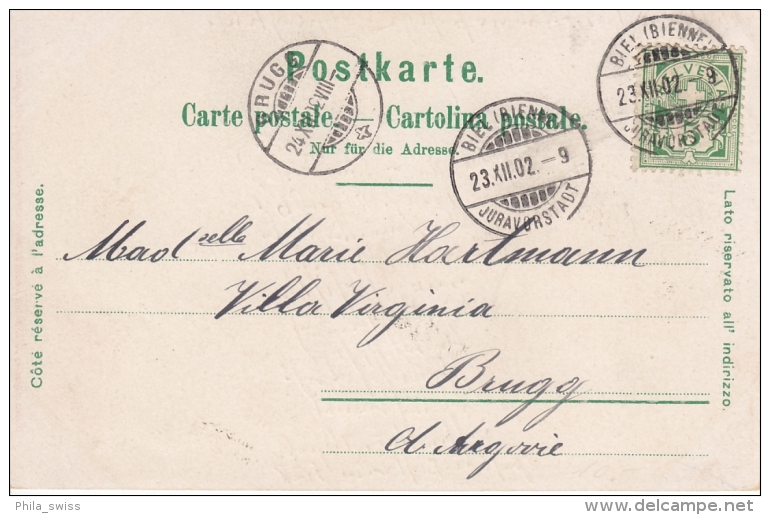 Postkarte.
Carte postale. — Cartolina postale.
Nur für die Adresse.
BRUGG
24.XII.02.VIII-
BIEL (BIENNE)
23.XII.02.-9
JURAVORSTADT
BIEL (BIENNE)
23.XII.02.-9
JURAVORSTADT
5
Côté réservé à l'adresse.
Lato riservato all' indirizzo.
Mad selle Marie Hartmann
Villa Virginia
Brugg
ct. Argovie
Phila_swiss
delcampe.net